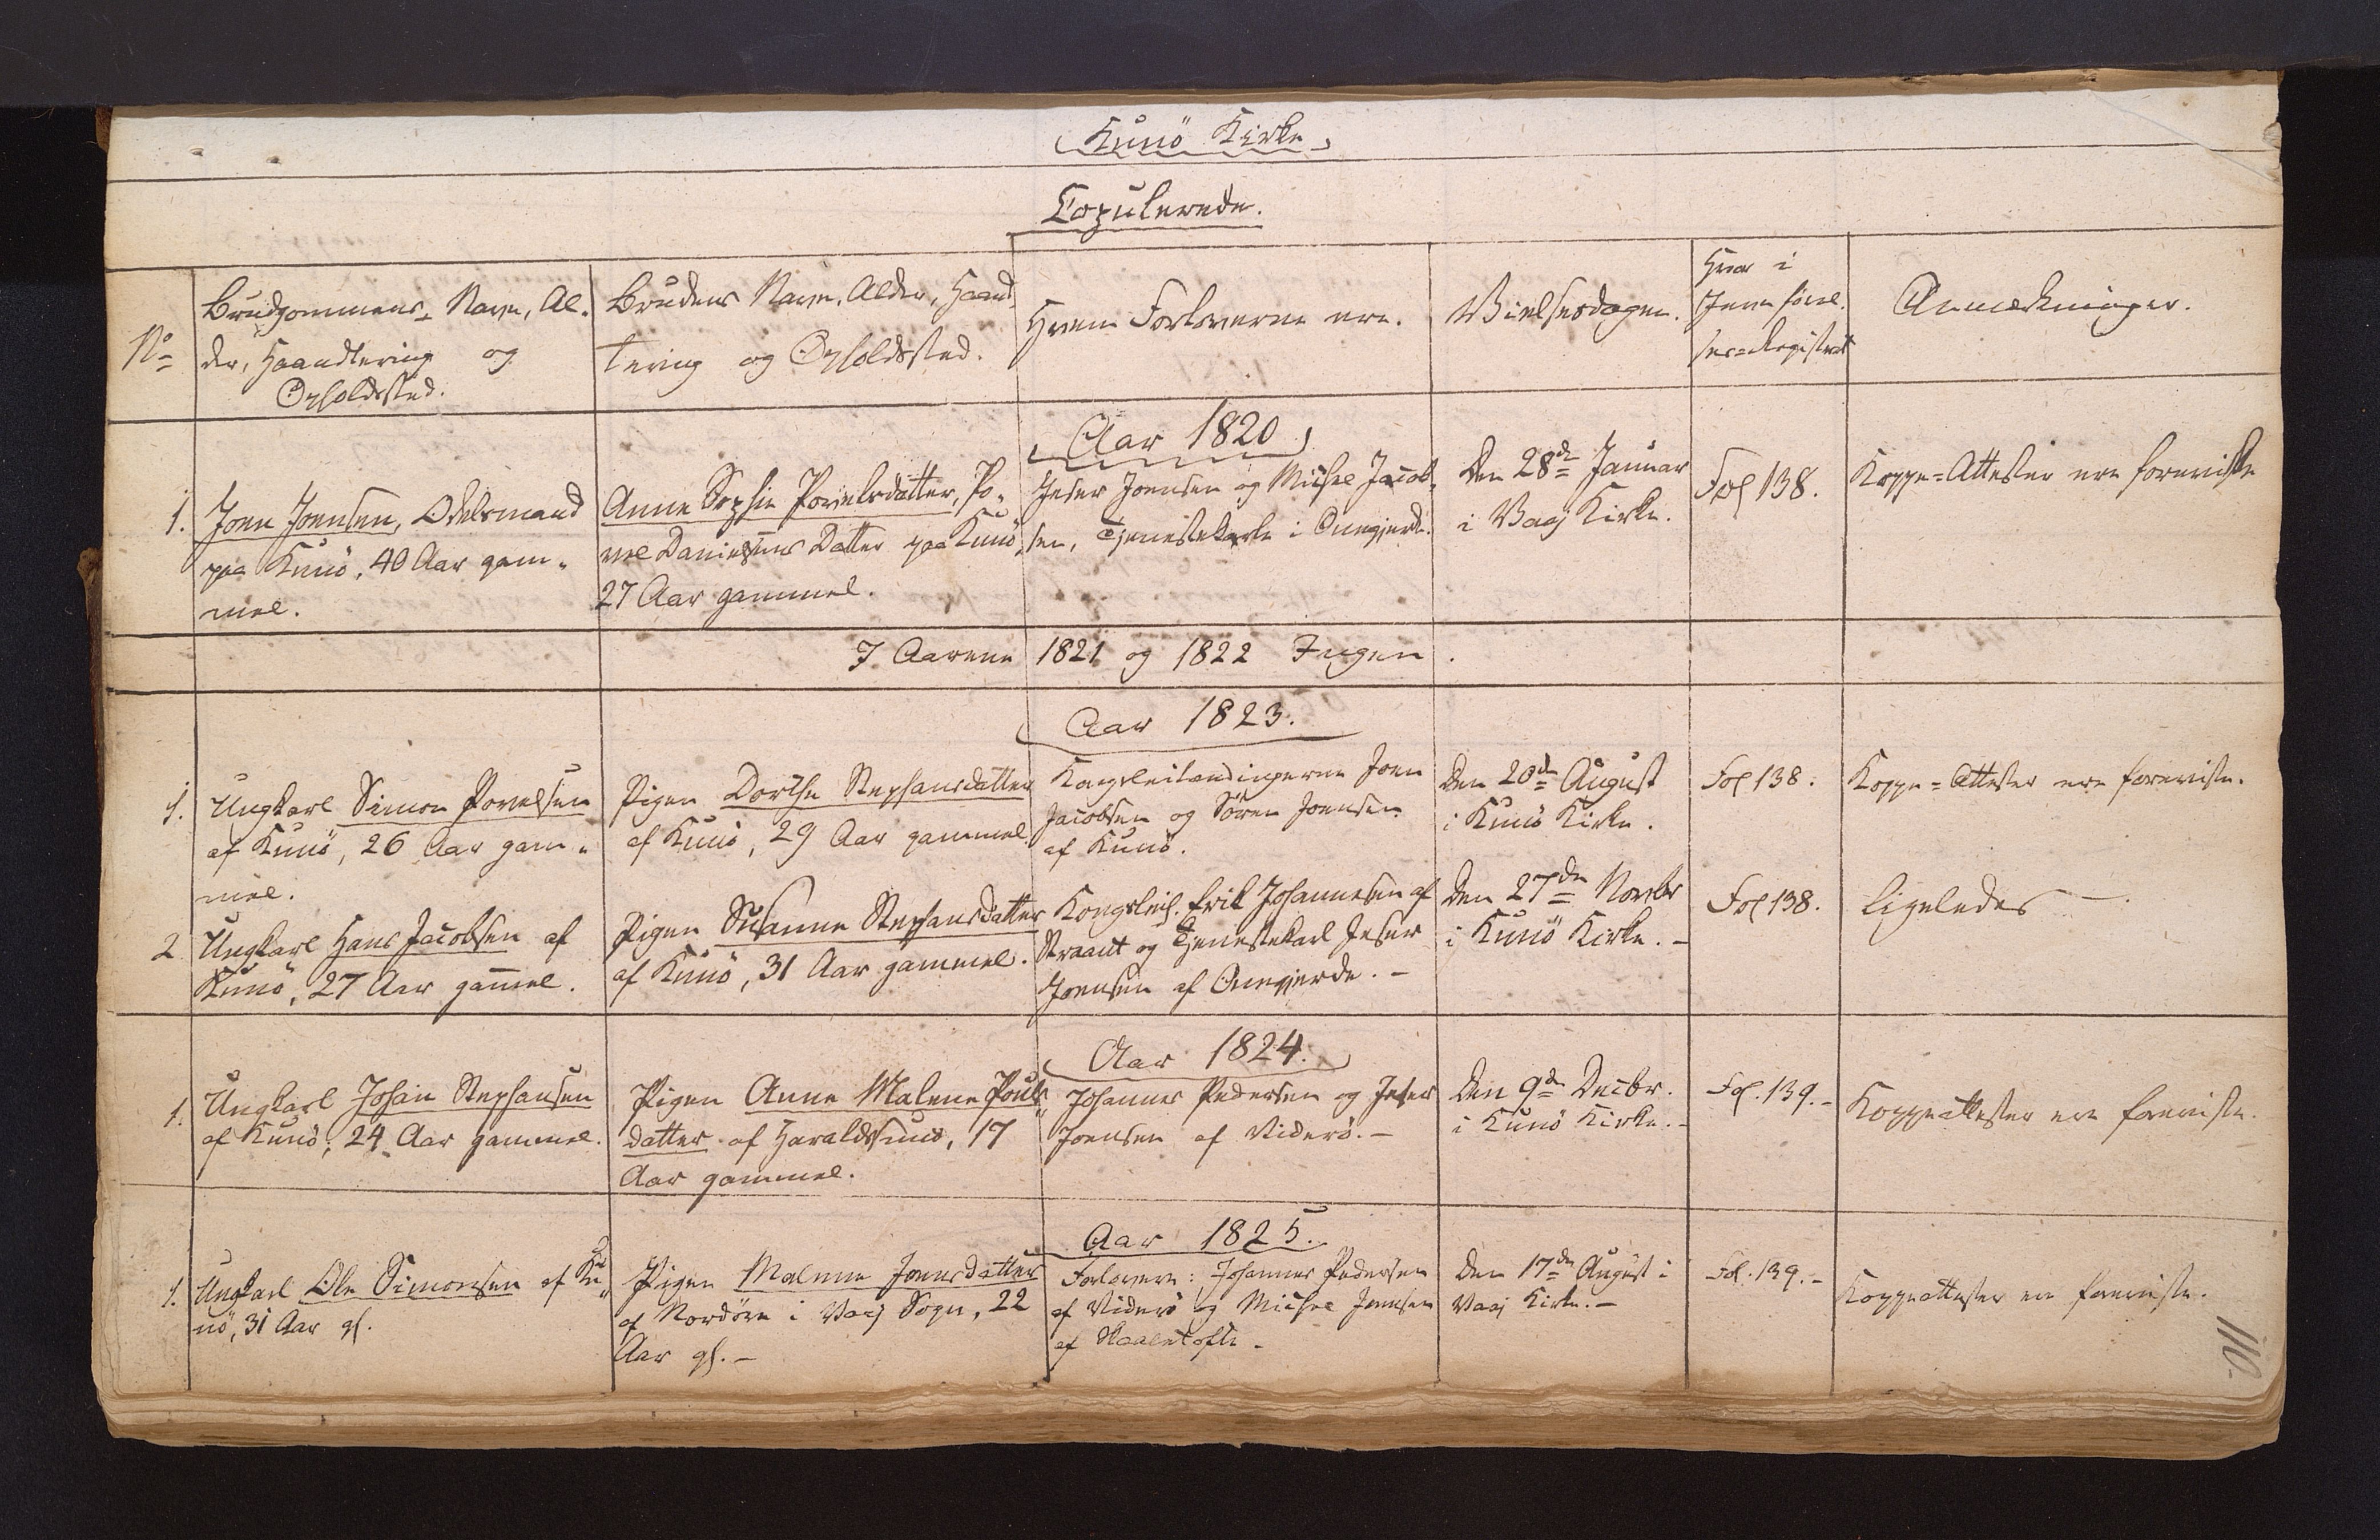 Kunö Kirke
Copulerede.
No
Brudgommens Navn, Al-
der, Haandtering og
Opholdssted.
Brudens Navn, Alder, Haand
tering og Opholdssted.
Hvem Forloverne ere.
Vielsesdagen.
Hvor i
Jevnførel-
ses-Registret
Anmærkninger.
Aar 1820
1.
Joen Joensen, Odelsmand
paa Kunö, 40 Aar gam-
mel.
Anne Sophie Povelsdatter, Po-
vel Danielsens Datter paa Kunö,
27 Aar gammel.
Jeser Joensen og Michel Jacob-
sen, Tjenestekarle i Onnegjerde.
Den 28de Januar
i Vaaj Kirke.
Fol 138.
Koppe=Attester ere foreviste
I Aarene 1821 og 1822 Ingen.
Aar 1823.
1.
Ungkarl Simon Povelsen
af Kunö, 26 Aar gam-
mel.
Pigen Dorthe Stephansdatter
af Kunö, 29 Aar gammel.
Kongsleilændingerne Joen
Jacobsen og Sören Joensen
af Kunö.
Den 20de August
i Kunö Kirke.
Fol 138.
Koppe=Attester ere foreviste.
2
Ungkarl Hans Jacobsen af
Kunö, 27 Aar gammel.
Pigen Susanne Stephansdatter
af Kunö, 31 Aar gammel.
Kongsleil. Erik Johannesen af
Straant og Tjenestekarl Jeser
Joensen af Onnegjerde. -
Den 27de Novbr
i Kunö Kirke. -
Fol 138.
Ligeledes -.
Aar 1824.
1.
Ungkarl Johan Stephansen
af Kunö, 24 Aar gammel.
Pigen Anne Malene Pouls-
datter af Haraldssund, 17
Aar gammel.
Johannes Pedersen og Jeser
Joensen af Viderö. -
Den 9de Decbr.
i Kunö Kirke. -
Fol. 139. -
Koppeattester ere foreviste.
Aar 1825.
1.
Ungkarl Ole Simonsen af Ku-
nö, 31 Aar gl.
Pigen Malene Joensdatter
af Nordöre i Vaaj Sogn, 22
Aar gl. -
Forlovere: Johannes Pedersen
af Viderö og Michel Joensen
af Skaaletofte -
Den 17de August i
Vaaj Kirke. -
Fol. 139. -
Koppeattester ere foreviste.
110.